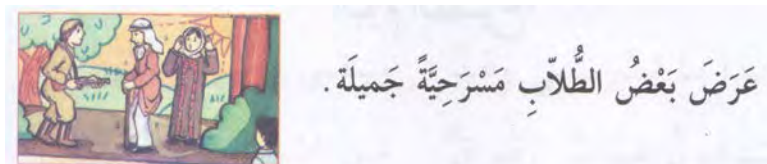 عَرَضَ بَعْضُ الطُّلاّبِ مَسْرَحِيَّةً جَميلَة .